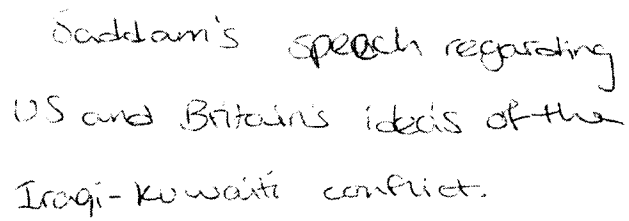 Saddam's speech regarding
US and Britain's ideas of the
Iraqi-Kuwaiti conflict.